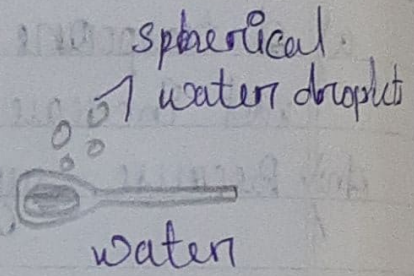 spherical
water droplets
water